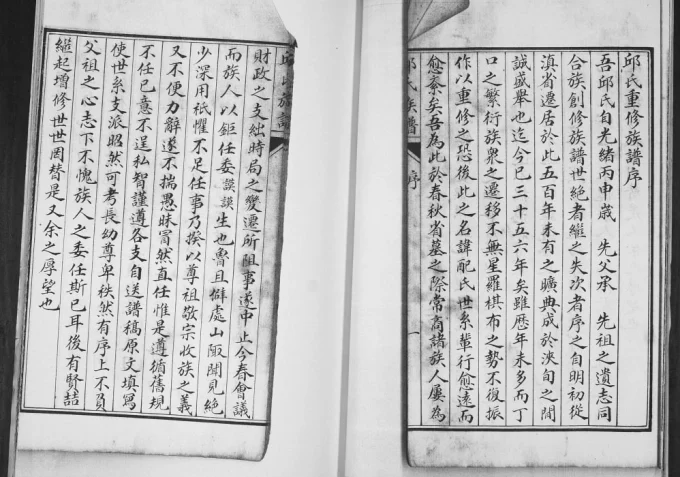 邱氏重修族譜序
吾邱氏自光緒丙申歲 先父承 先祖之遺志同
合族創修族譜世絶者繼之失次者序之自明初從
滇省遷居於此五百年未有之曠典成於浹旬之間
誠盛舉也迄今已三十五六年矣雖歷年未多而丁
口之繁衍族衆之遷移不無星羅棋布之勢不復振
作以重修之恐後此之名諱配氏世系輩行愈遠而
愈紊矣吾為此於春秋省墓之際常商諸族人屢為
邱氏族譜 序 一
邱氏族譜
財政之支絀時局之變遷所阻事遂中止今春會議
而族人以鉅任委謨謨生也魯且僻處山陬聞見絶
少深用祇懼不足任事乃揆以尊祖敬宗收族之義
又不便力辭遂不揣愚昧冒然直任惟是遵循舊規
不任己意不逞私智謹遵各支自送譜稿原文填寫
使世系支派昭然可考長幼尊卑秩然有序上不負
父祖之心志下不愧族人之委任斯已耳後有賢喆
繼起增修世世罔替是又余之厚望也